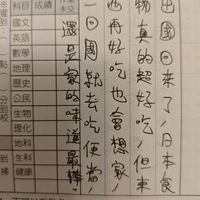 出國回來了！日本食
物真的超好吃！但東
西再好吃也會想家，
一回國就去吃便當
還是家的味道最棒。
科目 成績
國文
英語
數學
地理
歷史
公民
生物
理化
地科
生科
健康
點
分到校